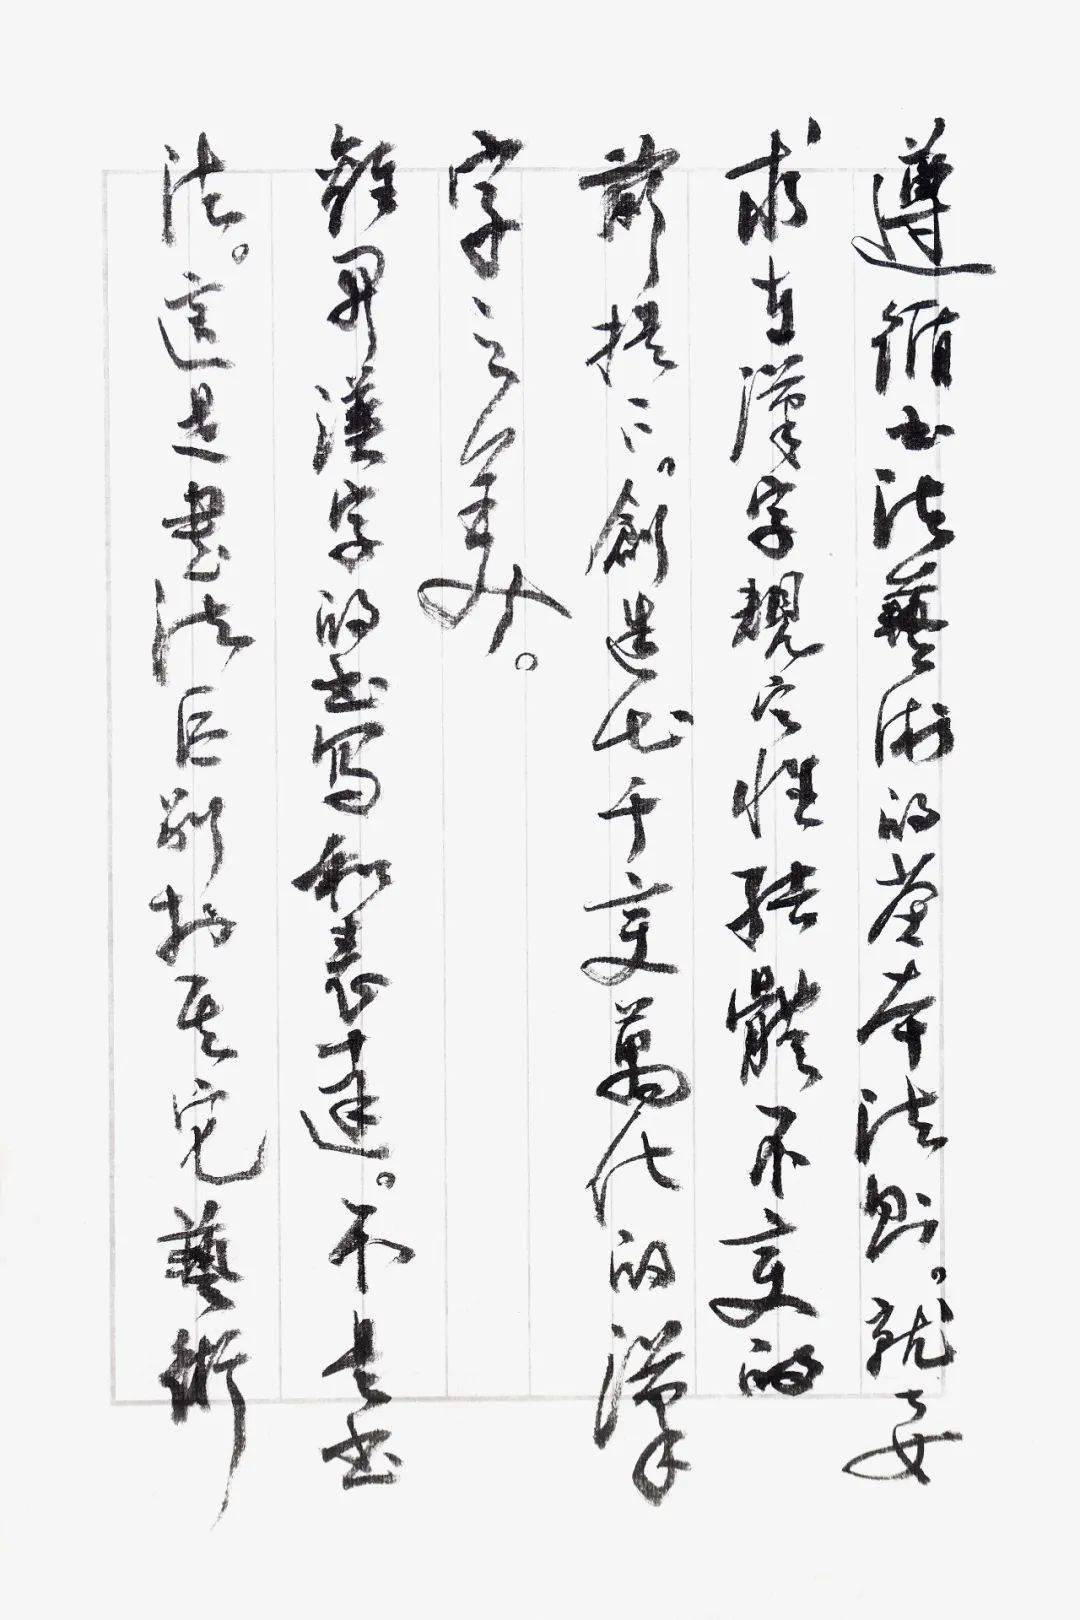 遵循书法藝術的基本法則。就要
求在漢字規定性結體不变的
前提下，創造出千变萬化的漢
字之美。
離開漢字的书寫和表達。不是书
法。這是書法區別於其它藝術